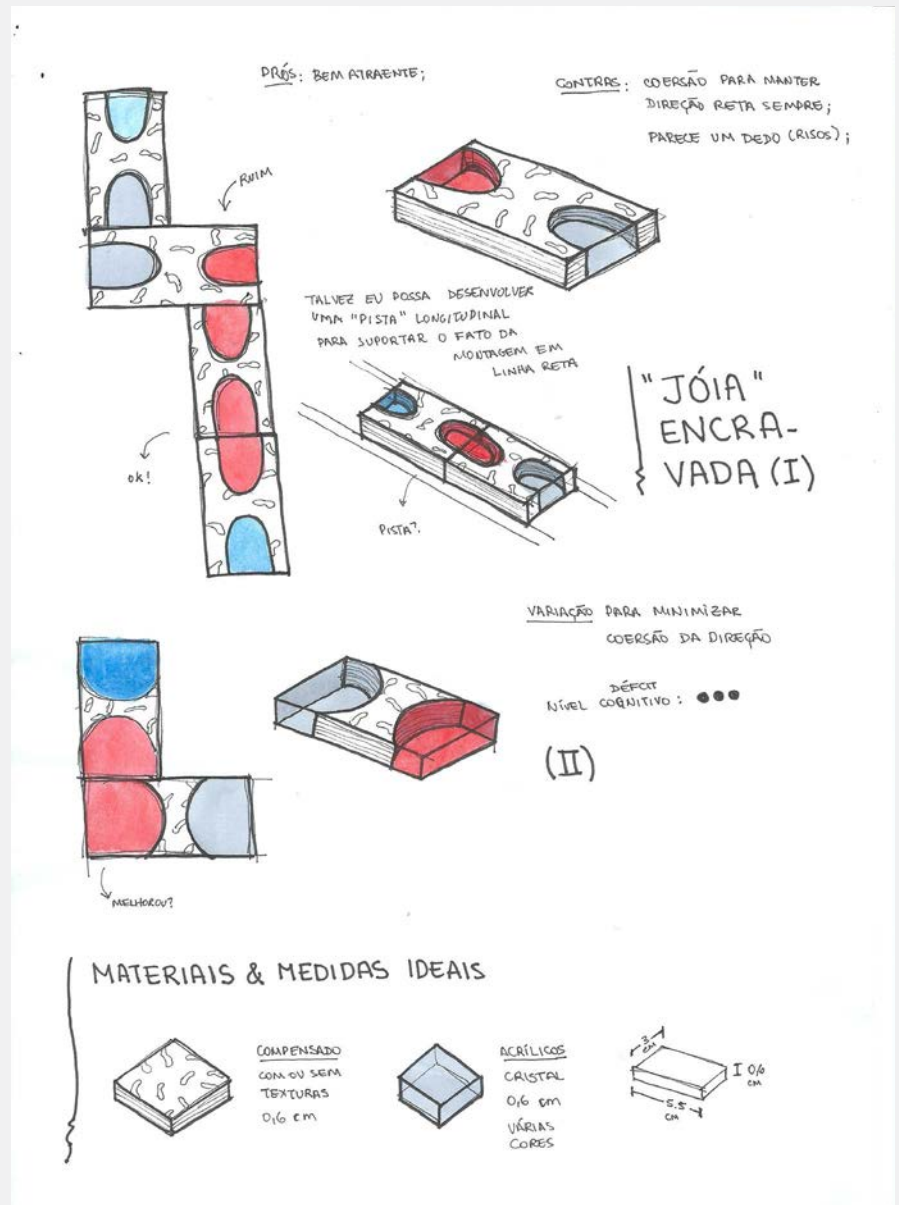 PRÓS: BEM ATRAENTE;
CONTRAS: COERSÃO PARA MANTER
DIREÇÃO RETA SEMPRE;
PARECE UM DEDO (RISOS);
RUIM
TALVEZ EU POSSA DESENVOLVER
UMA "PISTA" LONGITUDINAL
PARA SUPORTAR O FATO DA
MONTAGEM EM
LINHA RETA
"JÓIA"
ENCRA-
VADA (I)
ok!
PISTA?
VARIAÇÃO PARA MINIMIZAR
COERSÃO DA DIREÇÃO
DÉFCIT
NÍVEL COGNITIVO: ●●●
(II)
MELHOROU?
MATERIAIS & MEDIDAS IDEAIS
COMPENSADO
COM OU SEM
TEXTURAS
0,6 cm
ACRÍLICOS
CRISTAL
0,6 cm
VÁRIAS
CORES
3
cm
0,6
cm
5.5
cm